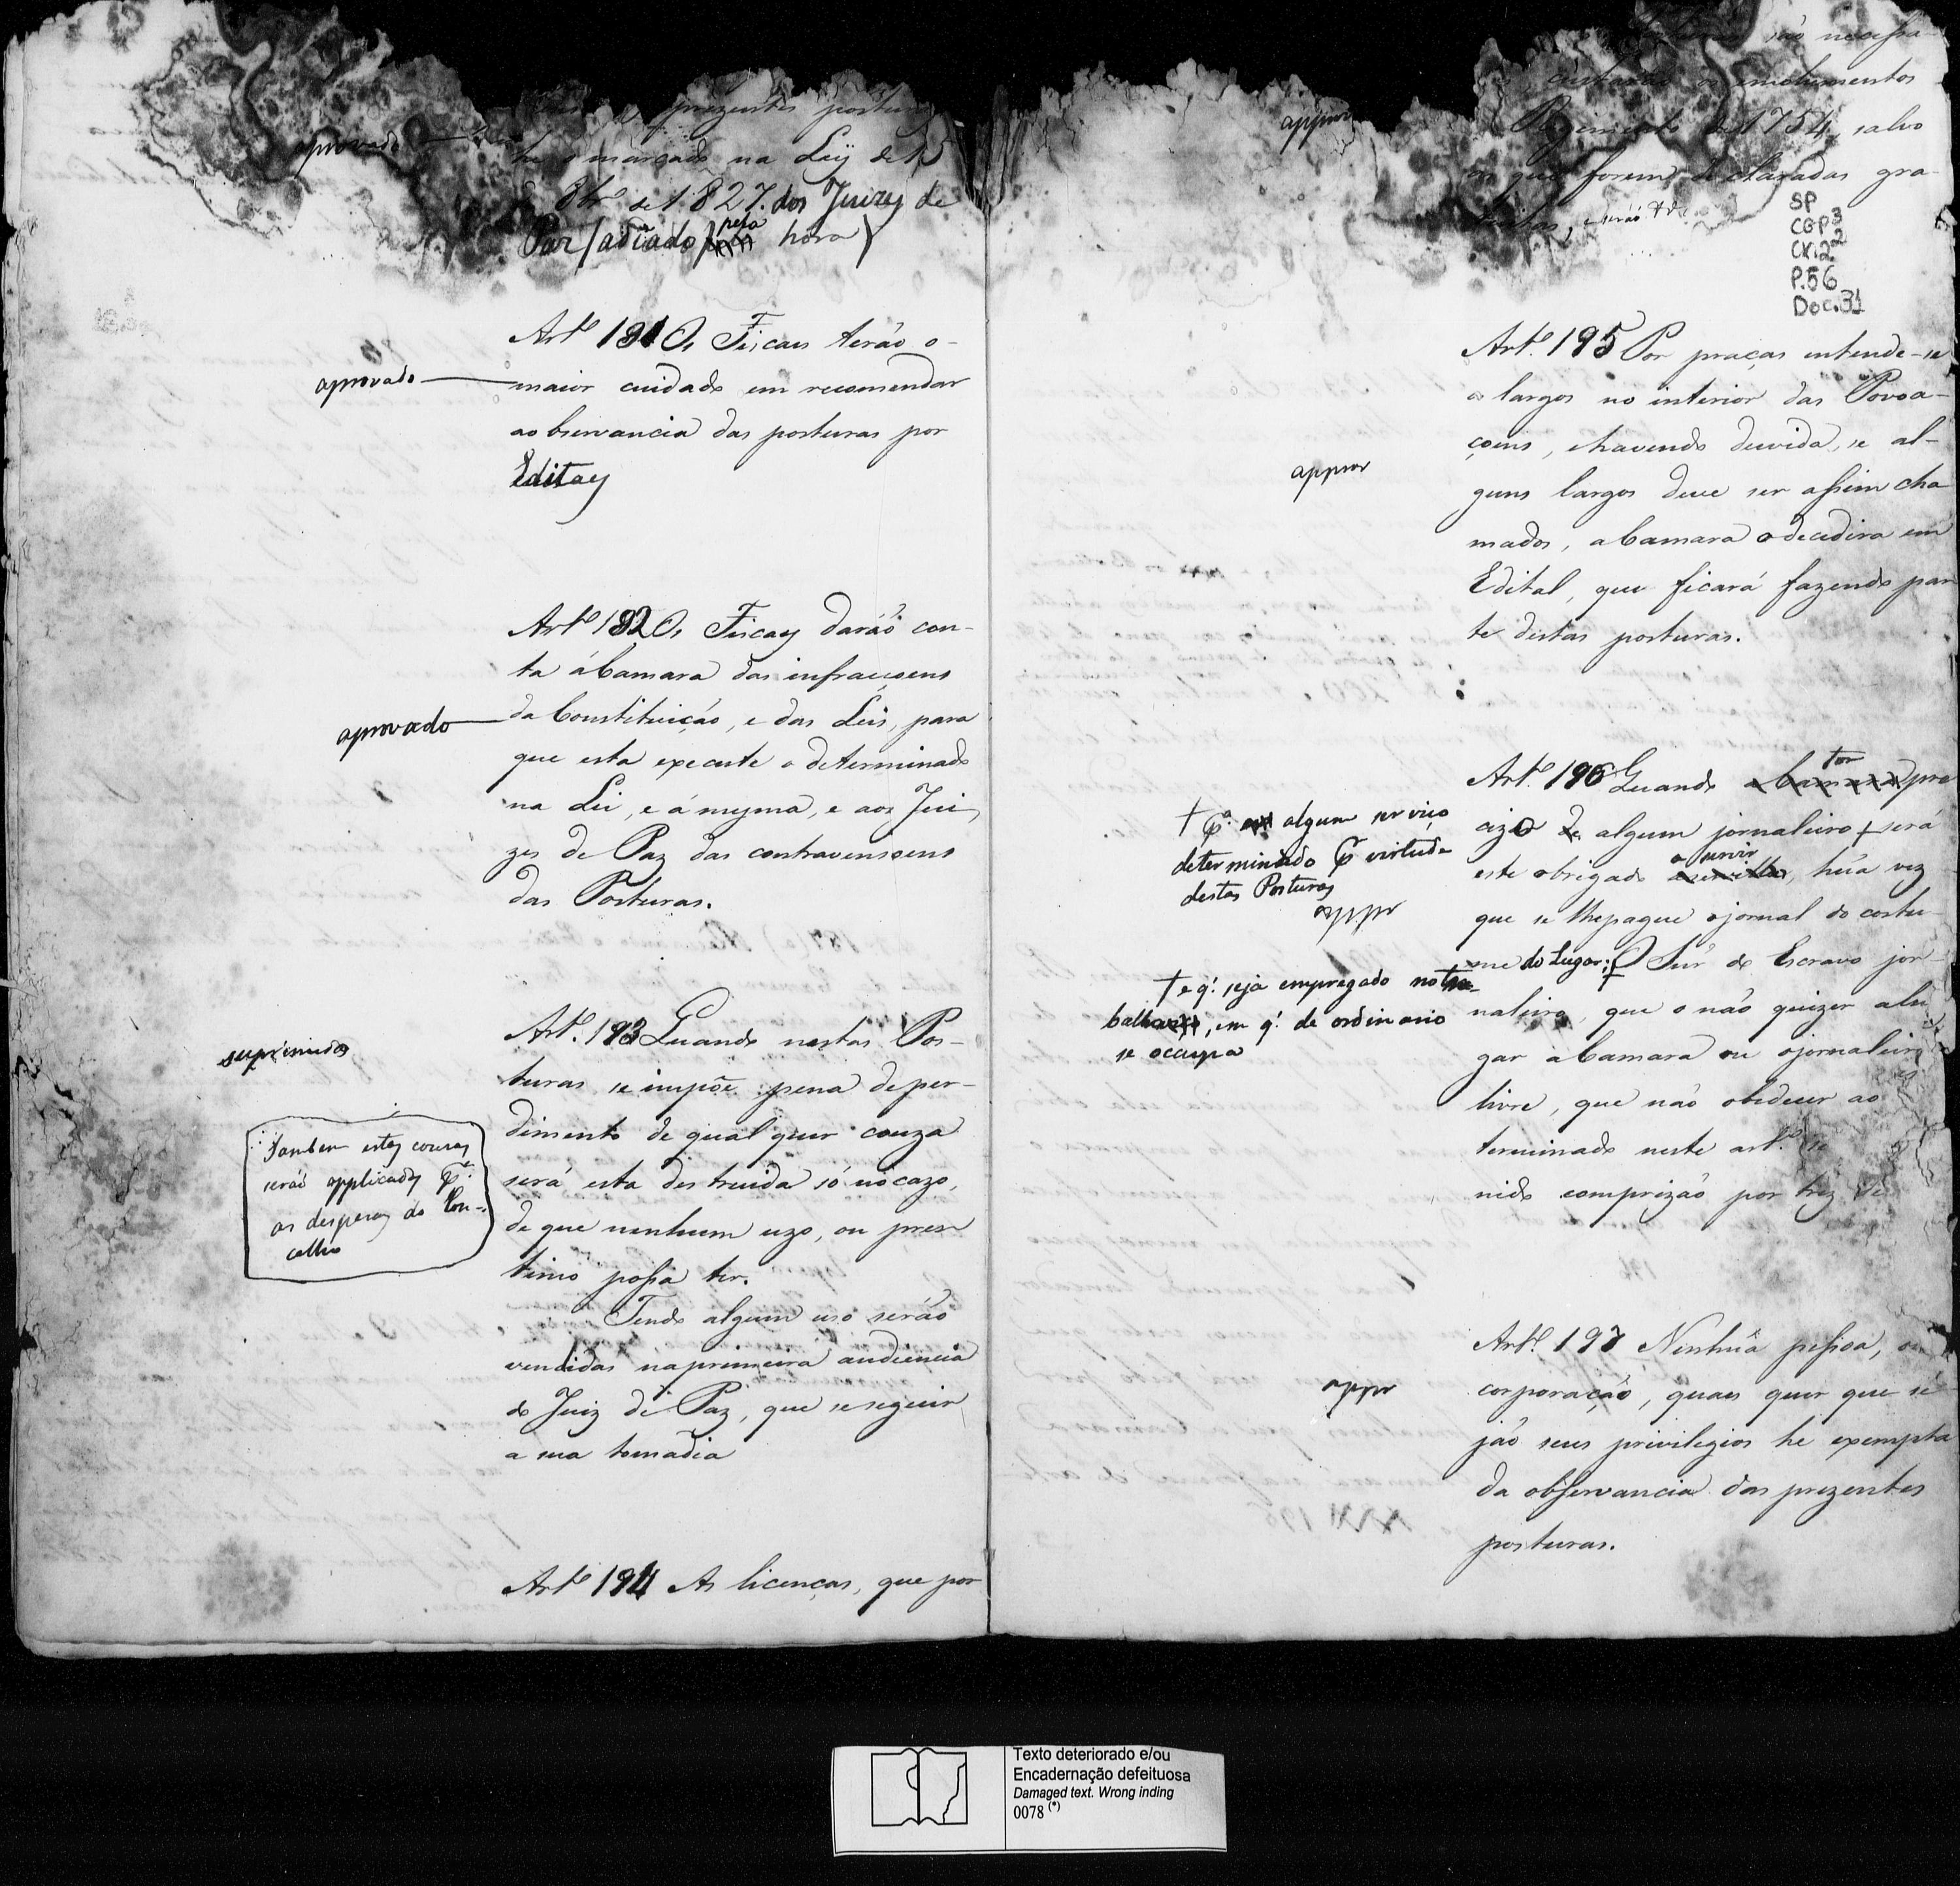 prezentes postur
aprovado
marcado na Ley de 15
8br.º de 1827. dos Juizes de
Paz (adiado pela hora)
Artº 191 Os Fiscaes terão o
aprovado
maior cuidado em recomendar
aobservancia das posturas por
Editaes
Artº 192 Os Fiscaes daráõ con-
ta áCamara das infraçoens
aprovado
da Constituição, e das Leis, para
que esta execute o determinado
na Lei, e á mesma, e aos Jui
zes de Paz das contravensoens
das Posturas.
suprimido
Art.º 193 Quando nestas Pos-
turas se impõe pena deper-
dimento de qual quer couza
será esta destruida só nocazo,
de que nenhum uzo, ou pres
timo possa ter.
Tambem estas couzas
serão applicadas pª
as despezas do Con-
celho
Tendo algum uso serão
vendidas naprimeira audiencia
do Juiz de Paz, que seseguir
a sua tomadia
Artº 194 As licenças, que por
são necessa
emolumentos
appror
Regimento de 1754, salvo
as que forem declaradas gra-
SP
CGP3
CX.22
P.56
Doc.31
Art.º 195 Por praças entende-se
os largos no interior das Povoa-
çoens, ehavendo duvida, se al-
appror
guns largos deve ser assim cha
mados, aCamara odecedira em
Edital, que ficará fazendo par
te destas posturas.
Art.º 196 Quando a Camara for pre
cizo de algum jornaleiro + será
† pª algum serviço
determinado pr virtude
destas Posturas
appr
este obrigado a servir, hũa vez
que se lhepague ojornal do costu-
me do Lugar; † O Snr' do Escravo jor-
naleiro, que o não quizer alu
† e q.' seja empregado no tra-
balho, em q.' de ordinario
se occupa
gar áCamara ou ojornaleiro
livre, que não obedecer ao
terminado neste art.º se
nido comprizão por trez
Artº. 197 Nenhũa pessoa, ou
appr
corporação, quaes quer que se
jão seus privilegios he exempta
da observancia das prezentes
posturas.
Texto deteriorado e/ou
Encadernação defeituosa
Damaged text. Wrong inding
0078 (*)